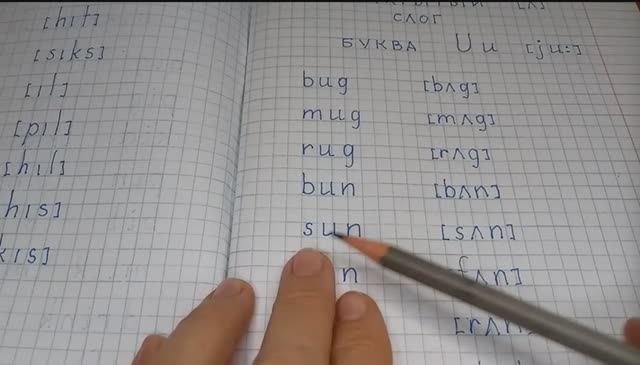 [hıt]
[sıks]
[ıl]
[pıl]
[hıl]
hıs]
kıs]
[ʌ]
СЛОГ
БУКВА Uu [ju:]
bug [bʌg]
mug [mʌg]
rug [rʌg]
bun [bʌn]
sun [sʌn]
n [fʌn]
[rʌn]